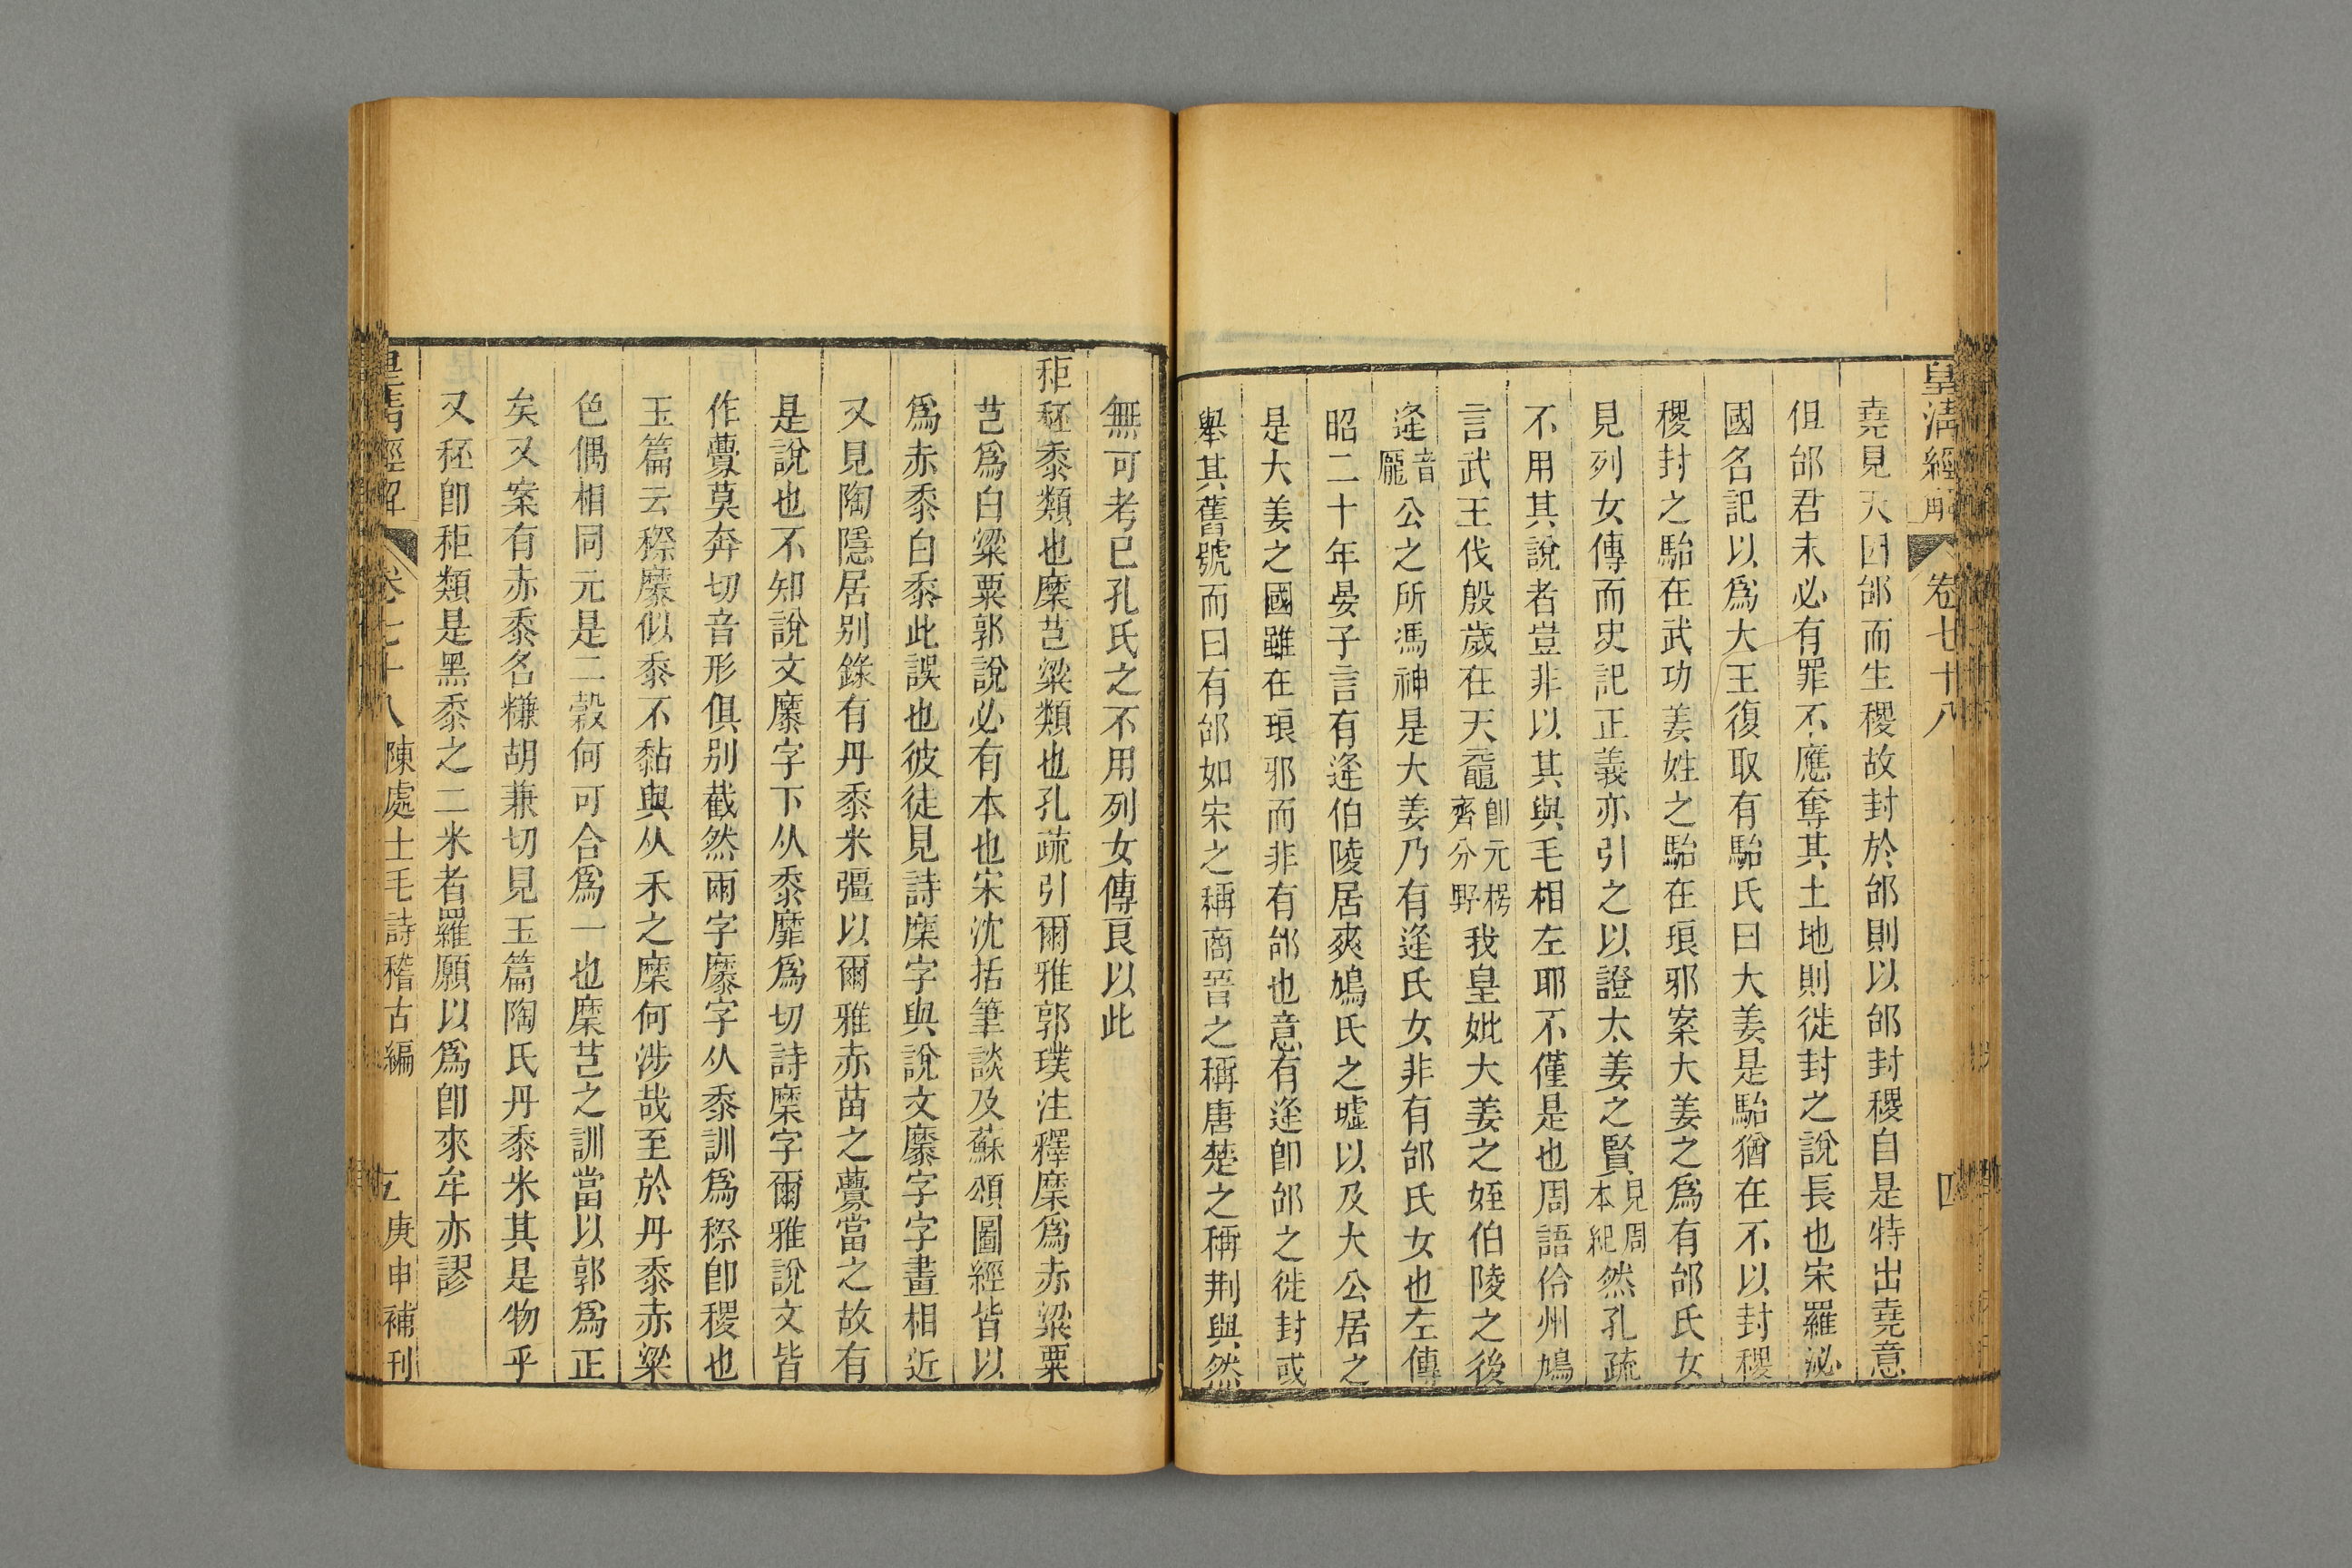 皇清經解 卷七十八 四
堯見天因邰而生稷故封於邰則以邰封稷自是特出堯意
但邰君未必有罪不應奪其土地則徙封之說長也宋羅泌
國名記以爲大王復取有駘氏曰大姜是駘猶在不以封稷
稷封之駘在武功姜姓之駘在琅邪案大姜之爲有邰氏女
見列女傳而史記正義亦引之以證太姜之賢見周本紀然孔疏
不用其說者豈非以其與毛相左耶不僅是也周語伶州鳩
言武王伐殷歲在天黿卽元枵齊分野我皇妣大姜之姪伯陵之後
逄音龐公之所馮神是大姜乃有逄氏女非有邰氏女也左傳
昭二十年晏子言有逄伯陵居爽鳩氏之墟以及大公居之
是大姜之國雖在琅邪而非有邰也意有逄卽邰之徙封或
舉其舊號而曰有邰如宋之稱商晉之稱唐楚之稱荆與然
無可考已孔氏之不用列女傳良以此
秬秠黍類也穈芑粱類也孔疏引爾雅郭璞注釋穈爲赤粱粟
芑爲白粱粟郭說必有本也宋沈括筆談及蘇頌圖經皆以
爲赤黍白黍此誤也彼徒見詩穈字與說文穈字字畫相近
又見陶隱居別錄有丹黍米彊以爾雅赤苗之虋當之故有
是說也不知說文穈字下从黍靡爲切詩穈字爾雅說文皆
作虋莫奔切音形俱别截然兩字穈字从黍訓爲穄卽稷也
玉篇云穄穈似黍不黏與从禾之穈何涉哉至於丹黍赤粱
色偶相同元是二穀何可合爲一也穈芑之訓當以郭爲正
矣又案有赤黍名䊠胡兼切見玉篇陶氏丹黍米其是物乎
又秠卽秬類是黑黍之二米者羅願以爲卽來牟亦謬
皇清經解 卷七十八 陳處士毛詩稽古編 五 庚申補刊